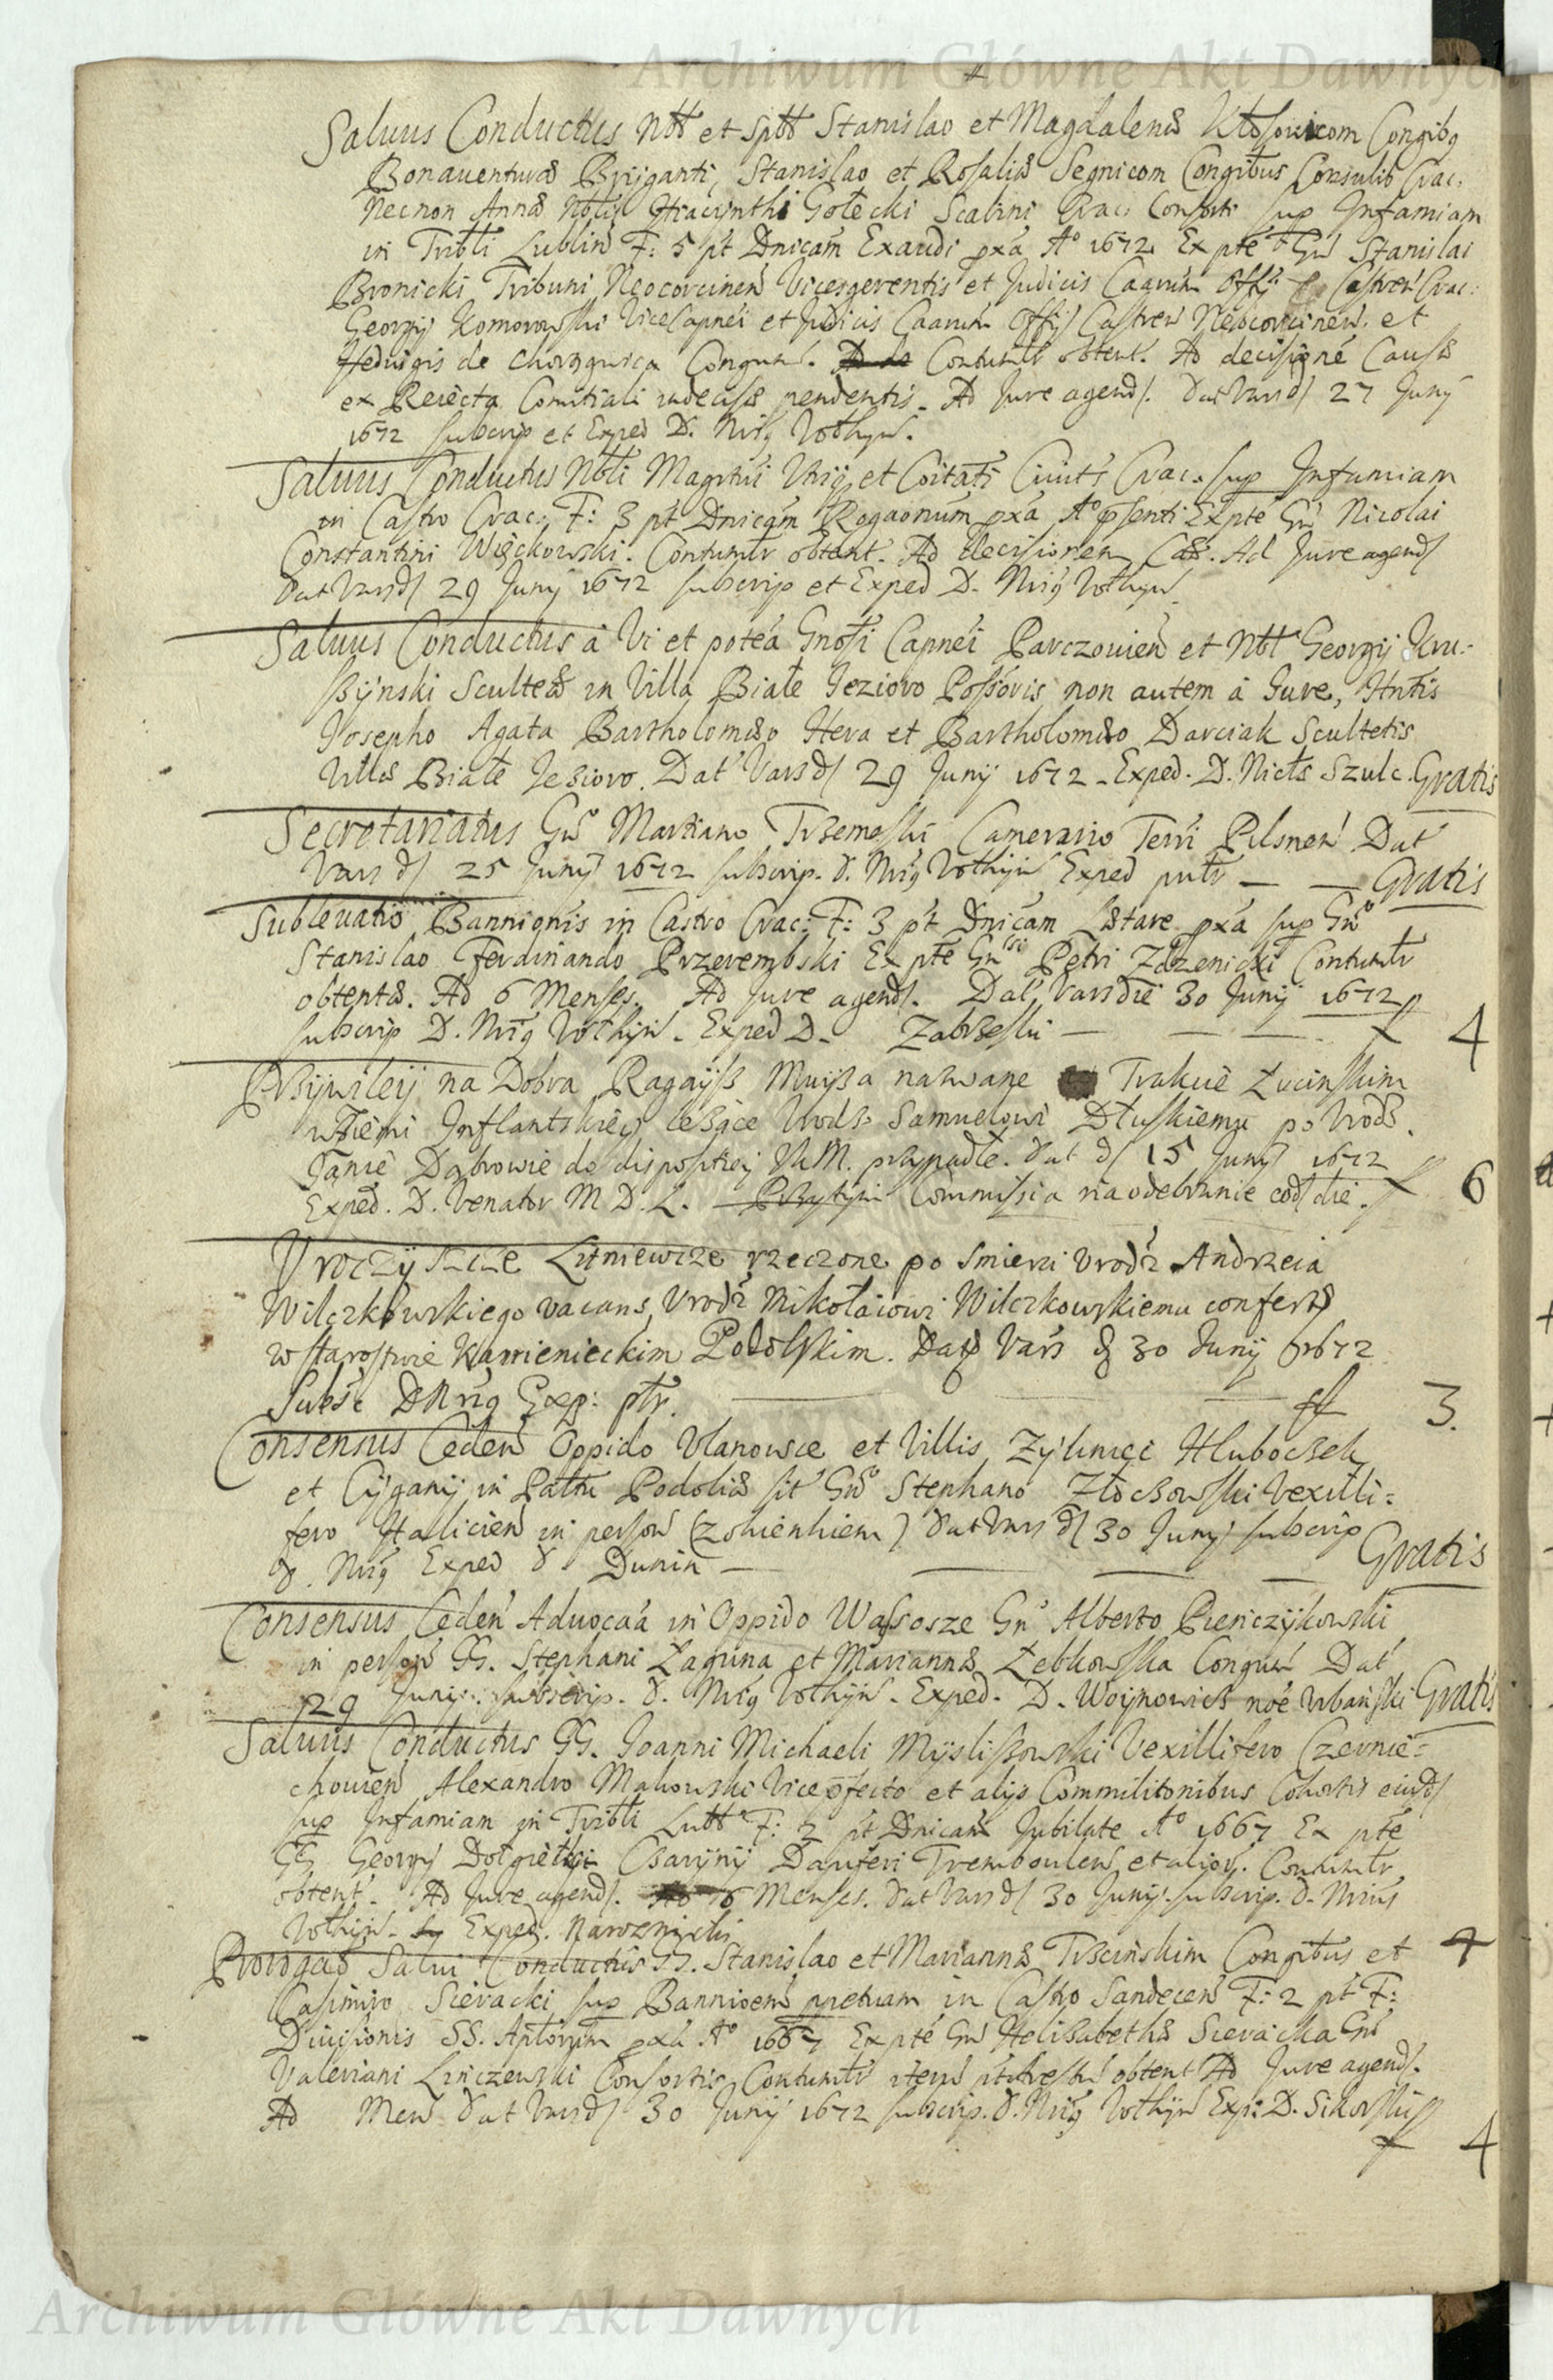 Archiwum Główne Akt Dawnych
Salvus Conductus Nbb et Spbb Stanislao et Magdalenæ Kłosowicom Congibq
Bonaventuræ Bryganti, Stanislao et Rosaliæ Segnicom Congibus Consulib Crac.
Necnon Annæ Nobilis Hiacynthi Gołecki Scabini Crac: Consorti sup Infamiam
in Tribli Lublin F: 5 pt Dnicam Exaudi pxa A° 1672 Ex pte Gn Stanislai
Bronicki Tribuni Neocorcinen Vicesgerentis et Judicis Caarum Offy Castren Crac:
Georgij Komorowski ViceCapnei et Judicis Caarum Offij Castren Neocorcinen. et
Heduigis de Congum. Contumtr obtent. Ad decisione Causæ
ex Reiecta Comitiali indecisæ pendentis. Ad Jure agend. Dat Vars d 27 Juny
1672 subscrip et Exped D. Nrig Wolhyn.
Salvus Conductus Nobli Magrtui Vrsij et Coitati Civits Crac. sup Infamiam
in Castro Crac: F: 3 pt Dnicam Rogaonum pxa A° psenti Ex pte Gn Nicolai
Constantini Więckowski. Contumtr obtent. Ad decisionem Cæ. Ad Jure agend
Dat Vars d 29 Juny 1672 subscrip et Exped D. Nrig Wolhyn
Salvus Conductus à Vi et potea Gnosi Capnei Parczovien et Nbt Georgij Kru-
szynski Scultetiæ in Villa Białe Jezioro Possoris non autem à Jure, Hntis
Josepho Agata Bartholomæo Hera et Bartholomæo Darciak Scultetis
Villæ Białe Jezioro. Dat Vars d 29 Junij 1672 - Exped. D. Nicls Szulc. Gratis
Secretariatus Gn° Martiano Trzemeski Camerario Terri Pilsnen Dat
Vars d 25 Junij 1672 subscrip. D. Nrig Wolhyn Exped pntr — — Gratis
Sublevatio Bannionis in Castro Crac: F: 3 pt Dnicam Lætare pxa sup Gn°
Stanislao Ferdinando Przerembski Ex pte Gnsi Petri Zdzenicki Contumtr
obtentæ. Ad 6 Menses. Ad Jure agend. Dat Vars die 30 Junij 1672
subscrip D. Nrig Wolhyn. Exped D. Zabrzeski — — — 4
Przywiley na Dobra Ragayß Muyza nazwane Trakcie Lucinskim
w Ziemi Inflantskiey leżące Vrodz Samuelowi Dłuskiemu po Vrodz.
Janie Dąbrowie do dispositiey JKM. przypadłe. Dat d 15 Junij 1672
Exped. D. Venator M D. L. Commissia na odebranie eod die. 6
Vroczyszcze Litniewcze rzeczone po smierci vrodz Andrzeia
Wilczkowskiego vacans, Vrodz Mikołaiowi Wilczkowskiemu confert
w starostwie Kamienieckim Podolskim. Dat Vars d 30 Junij 1672
Subsc DNrig Exp: ptr. — — 3.
Consensus Ceden Oppido Vlanowce et Villis Zylinci Hluboczek
et Cyganij in Pattu Podoliæ sit Gn° Stephano Złoczowski Vexilli-
fero Halicien in person (z okienkiem) Dat Vars d 30 Junij subscrip
D. Nrig Exped D Dunin — — — — Gratis
Consensus Ceden Aduocaa in Oppido Wąsosze Gn° Alberto Pienczykowski
in person GG. Stephani Łaguna et Mariannæ Zebkowska Congum Dat
29 Junij. subscrip. D. Nrig Wolhyn. Exped. D. Woynowicz noe Vrbański Gratis
Salvus Conductus GG. Joanni Michaeli Myśliszowski Vexillifero Czernie-
chovien Alexandro Makowski Vicepfecto et alijs Commilitonibus Cohortis eiusd
sup Infamiam in Tribli Lubl F: 2 pt Dnicam Jubilate A° 1667 Ex pte
GG Georgij Dołgiert Dapiferi Tremboulen et alior. Contumtr
obtent. Ad Jure agend. 6 Menses. Dat Vars d 30 Junij. subscrip. D. Nrius
Wolhyn. Exped. Naroznicki 4
Prorogaô Salui Conductus GG. Stanislao et Mariannæ Trscinskim Congibus et
Casimiro Sieracki sup Bannioem ppetuam in Castro Sandecen F: 2 pt F:
Diuisionis SS. Aplorum pxa A° 1667 Ex pte Gn Helisabethæ Sieracka Gn
Valeriani Linczewski Consortis Contumtr obtent Ad Jure agend.
Ad Men Dat Vars d 30 Junij 1672 subscrip. D. Nrig Wolhyn Exp: D. Sikorski
4
Archiwum Główne Akt Dawnych